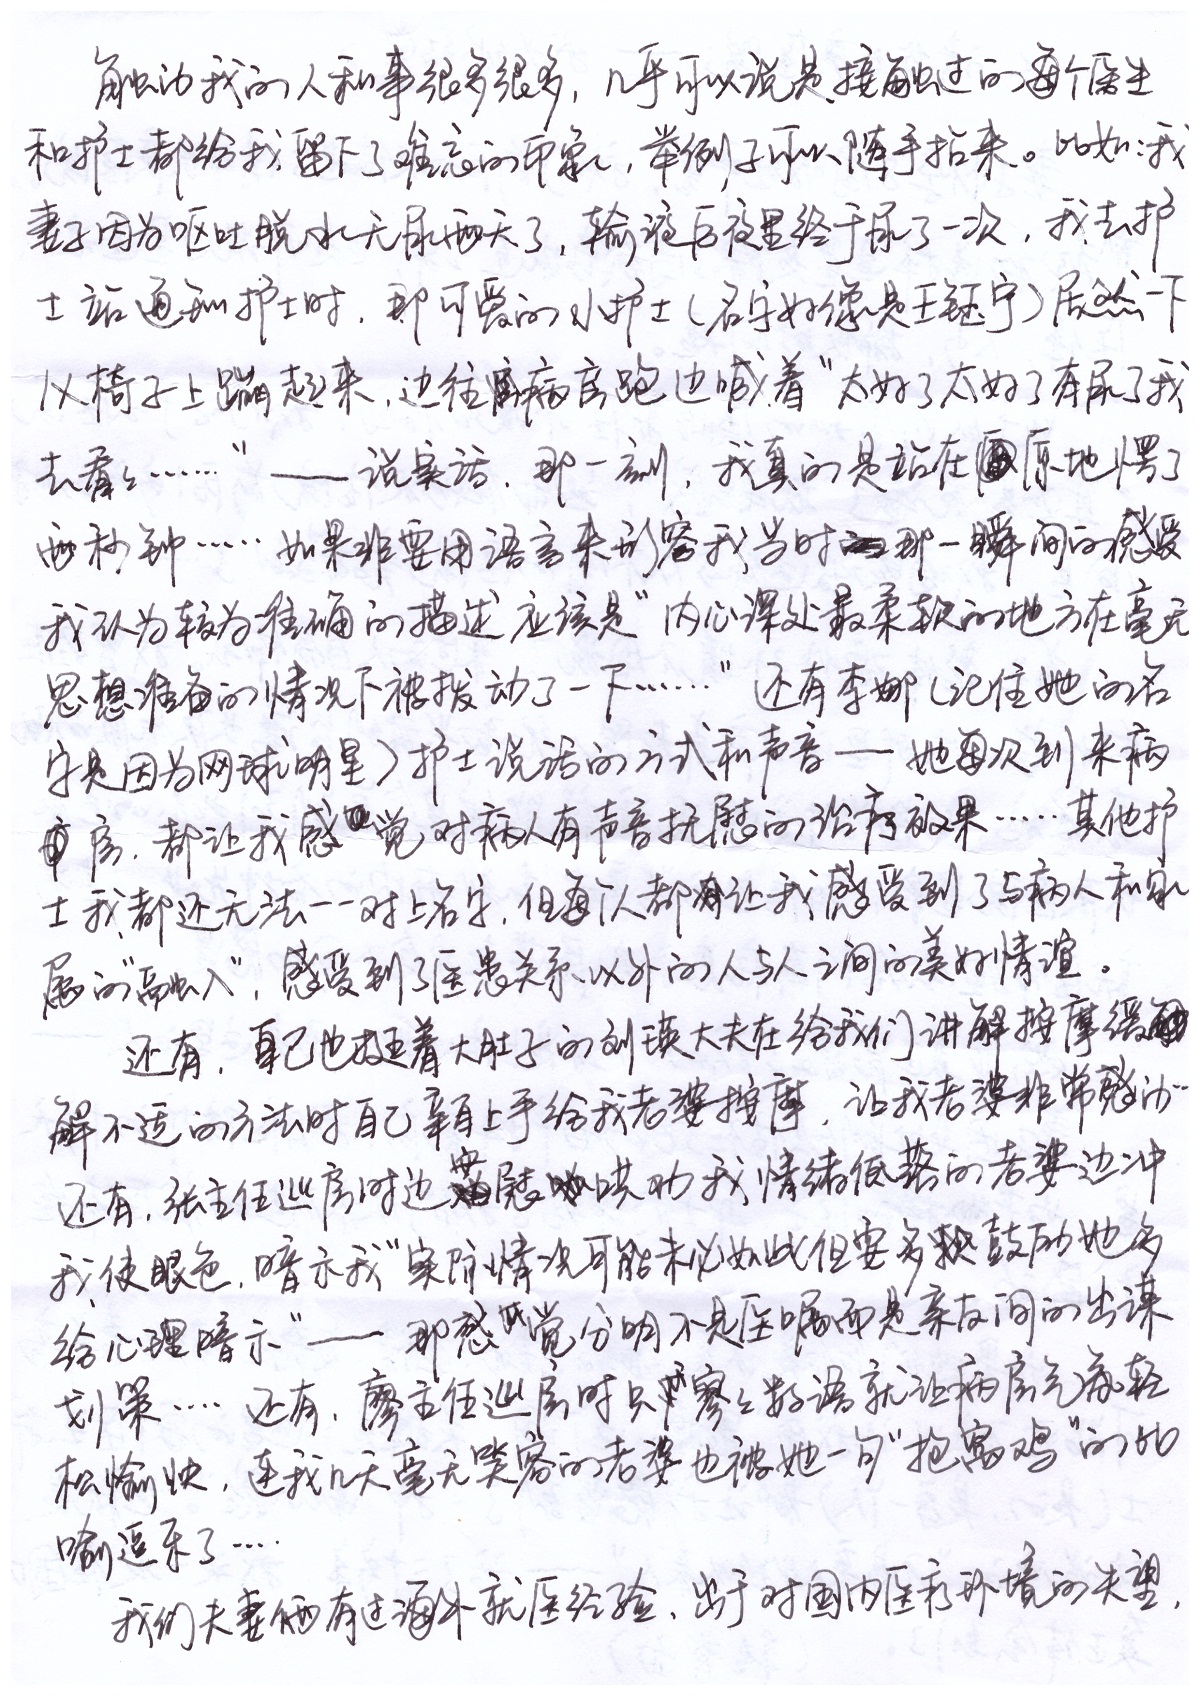 触动我的人和事很多很多，几乎可以说是接触过的每个医生
和护士都给我留下了难忘的印象，举例子可以随手拈来。比如：我
妻子因为呕吐脱水无尿两天了，输液后夜里终于尿了一次，我去护
士站通知护士时，那可爱的小护士（名字好像是王钰宁）居然一下
从椅子上蹦起来，边往病房跑边喊着“太好了太好了有尿了我
去看看……”——说实话，那一刻，我真的是站在原地愣了
两秒钟……如果非要用语言来形容我当时那一瞬间的感受
我认为较为准确的描述应该是“内心深处最柔软的地方在毫无
思想准备的情况下被拨动了一下……”还有李娜（记住她的名
字是因为网球明星）护士说话的方式和声音——她每次到来病
房，都让我感觉对病人有声音抚慰的治疗效果……其他护
士我都还无法一一对上名字，但每个人都让我感受到了与病人和家
属的“融入”，感受到了医患关系以外的人与人之间的美好情谊。
还有，自己也挺着大肚子的刘瑛大夫在给我们讲解按摩缓
解不适的方法时自己亲自上手给我老婆按摩，让我老婆非常感动…
还有，张主任巡房时边安慰哄劝我情绪低落的老婆边冲
我使眼色，暗示我“实际情况可能未必如此但要多鼓励她多
给心理暗示”——那感觉分明不是医嘱而是亲友间的出谋
划策……还有，廖主任巡房时只寥寥数语就让病房气氛轻
松愉快，连我几天毫无笑容的老婆也被她一句“抱窝鸡”的比
喻逗乐了……
我们夫妻俩有过海外就医经验，出于对国内医疗环境的失望，